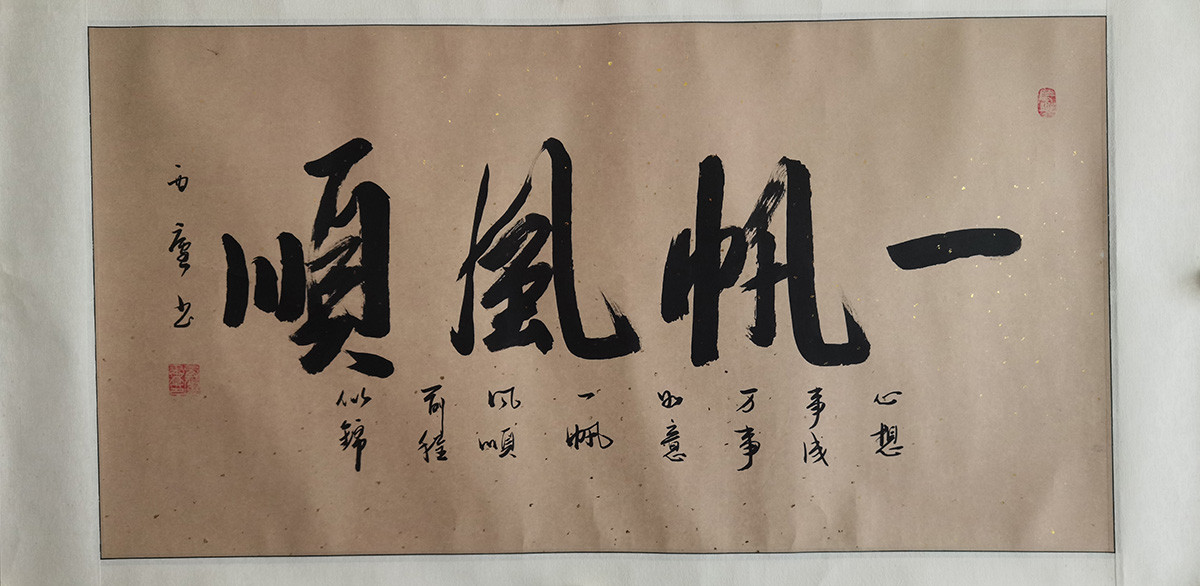 一帆風順
心想
事成
万事
如意
一帆
风順
前程
似錦
西廬书